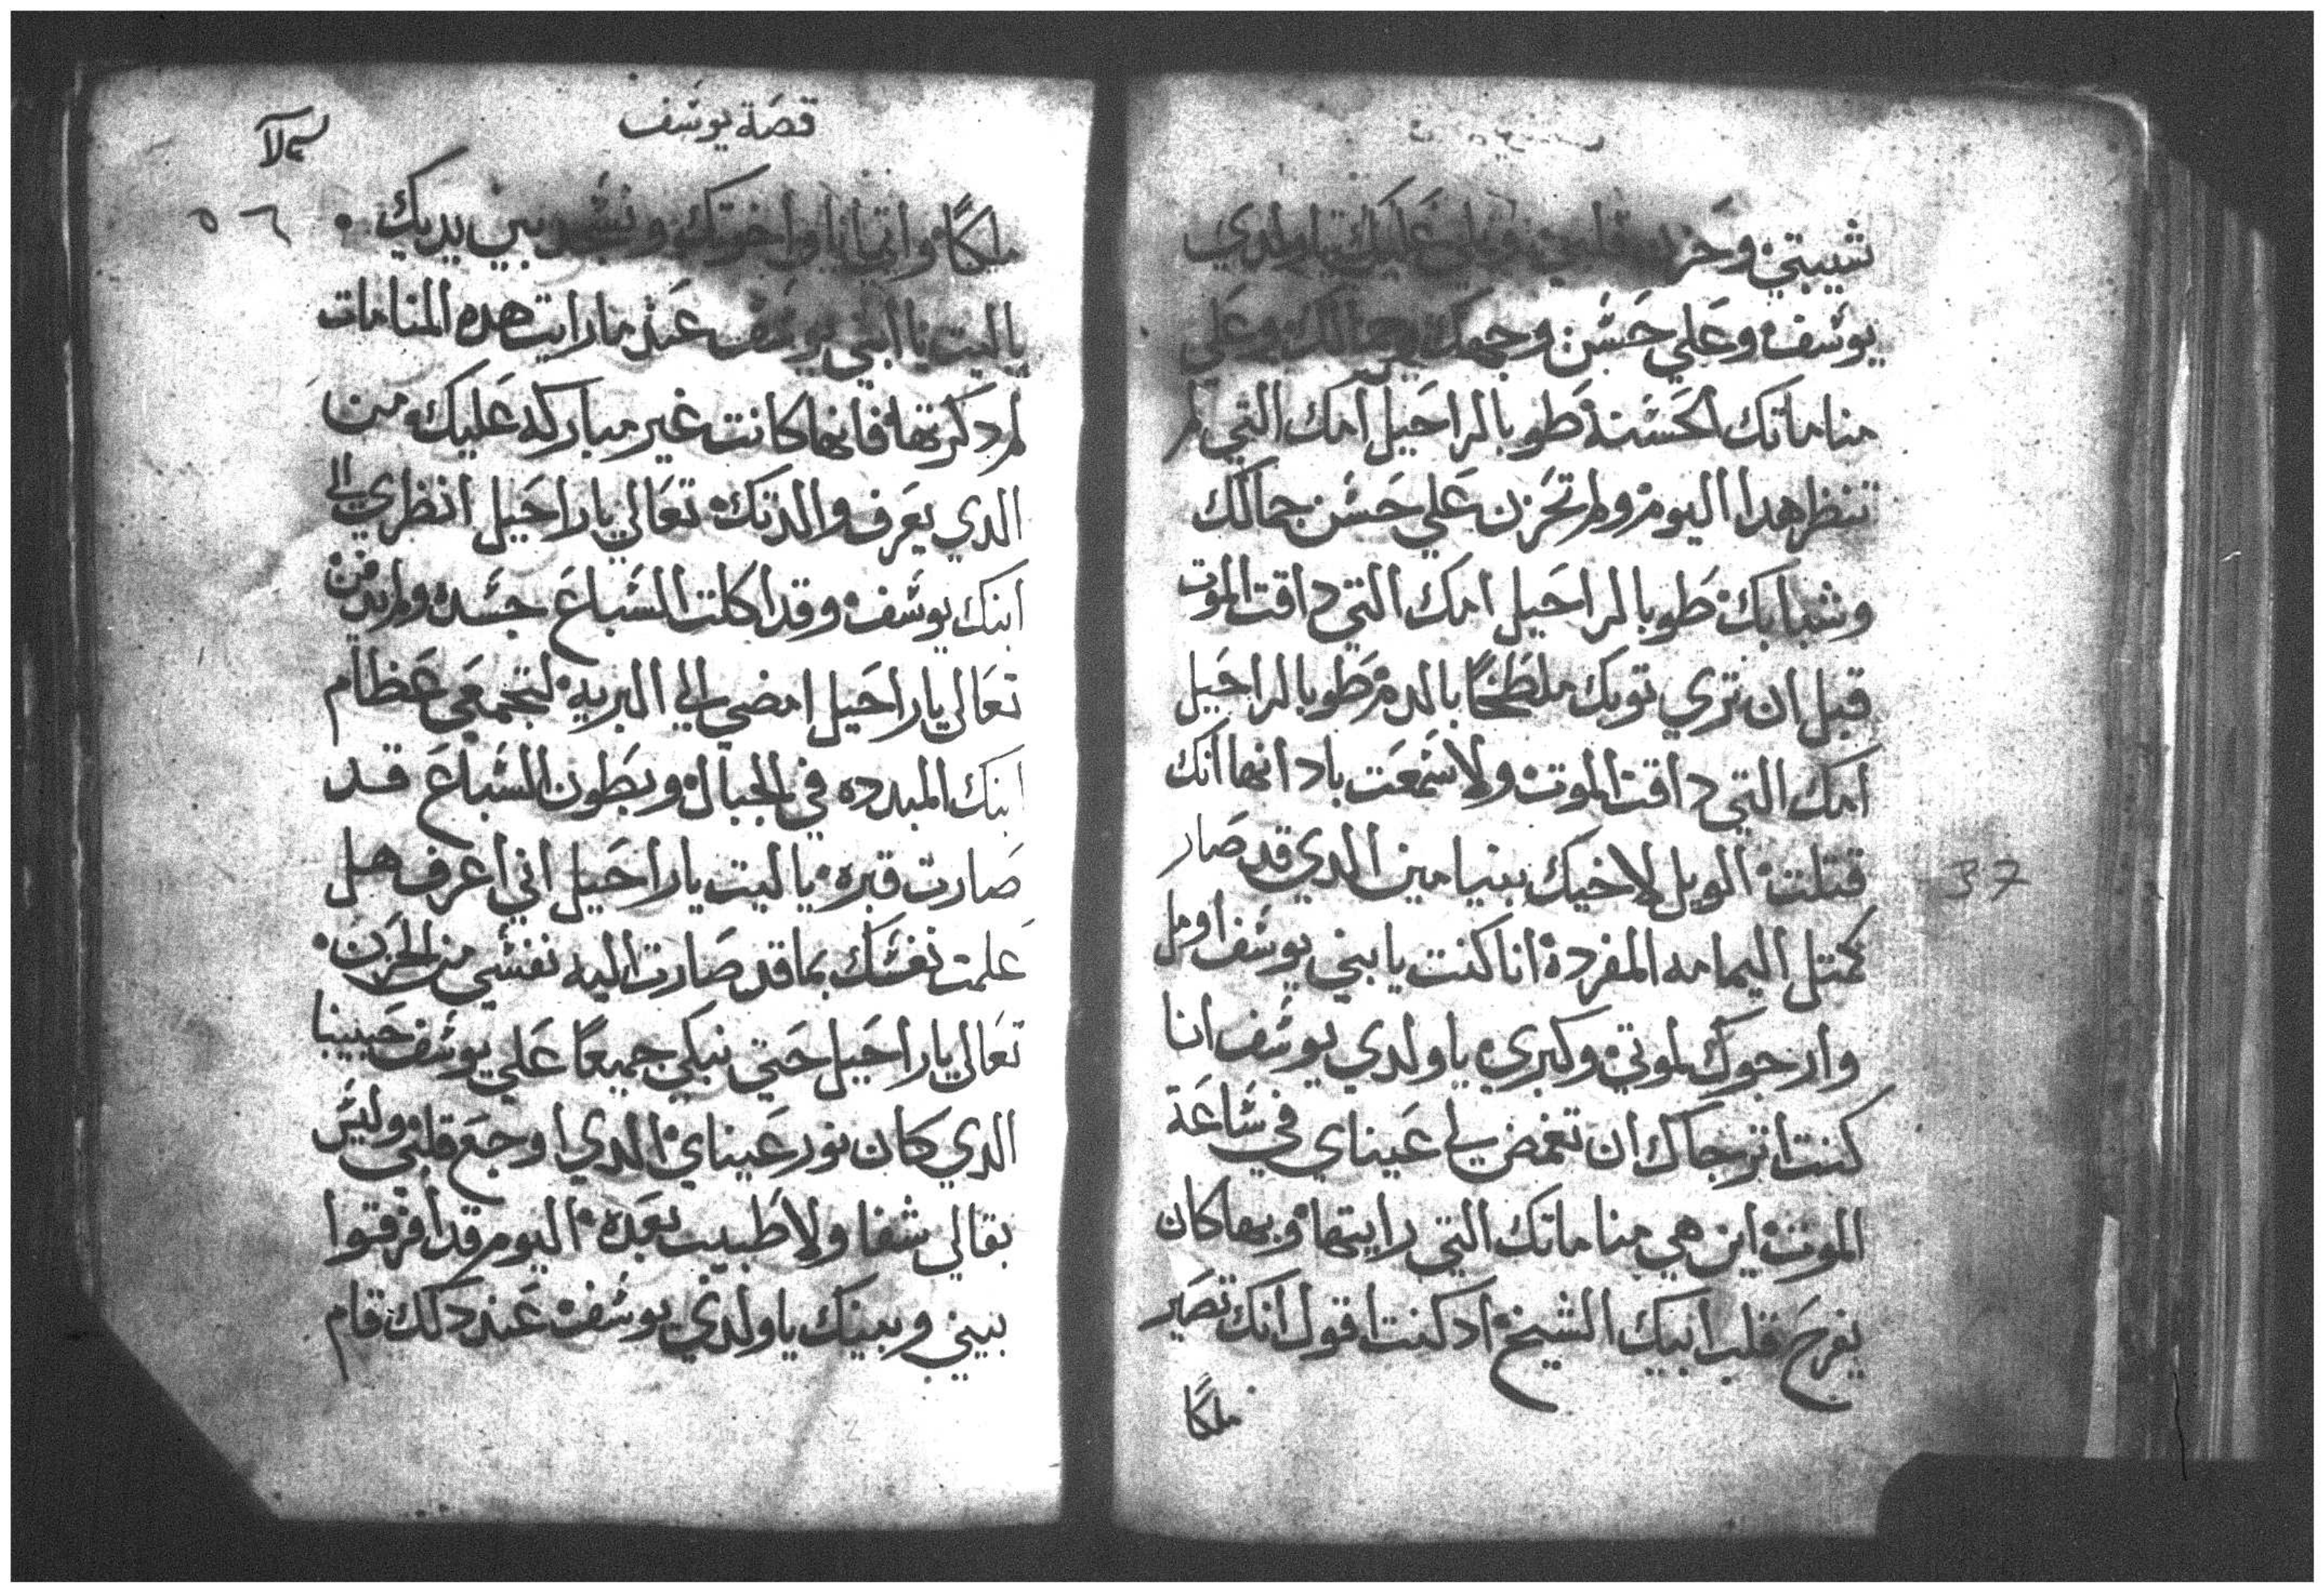 شيبتي وحزن قلبي ويلي عليك يا ولدي
يوسف وعلي حسن وجهك وجمالك وعلي
مناماتك الحسنة طوبا لراحيل امك التي لم
تنظر هدا اليوم ولم تحزن علي حسن جمالك
وشبابك طوبا لراحيل امك التي داقت الموت
قبل ان تري توبك ملطخًا بالدم طوبا لراحيل
امك التي داقت الموت ولا سمعت بادانها انك
قتلت الويل لاخيك بنيامين الدي قد صار
كمتل اليمامه المفردة انا كنت يا بني يوسف اومل
وارجوك لموتي وكبري يا ولدي يوسف انا
كنت اترجاك ان تغمض لي عيناي في ساعة
الموت اين هي مناماتك التي رايتها وبها كان
يفرح قلب ابيك الشيخ اد كنت اقول انك تصير
ملكًا
37
قصة يوسف
٥٦
ملكًا واتي انا واخوتك ونسجد بين يديك
يا ليت يا ابني يوسف عند ما رايت هده المنامات
لم دكرتها فانها كانت غير مباركه عليك من
الدي يعرف والدتك تعالي يا راحيل انظري الي
ابنك يوسف وقد اكلت السباع جسده ولم يدفن
تعالي يا راحيل امضي الي البريه لتجمعي عظام
ابنك المبدده في الجبال وبطون السباع قد
صارت قبره يا ليت يا راحيل اني اعرف هل
علمت نفسك بما قد صارت اليه نفسي من الحزن
تعالي يا راحيل حتي نبكي جميعًا علي يوسف حبيبنا
الدي كان نور عيناي الدي اوجع قلبي وليس
بقا لي شفا ولا طبيب بعده اليوم قد افرقوا
بيني وبينك يا ولدي يوسف عند دلك قام